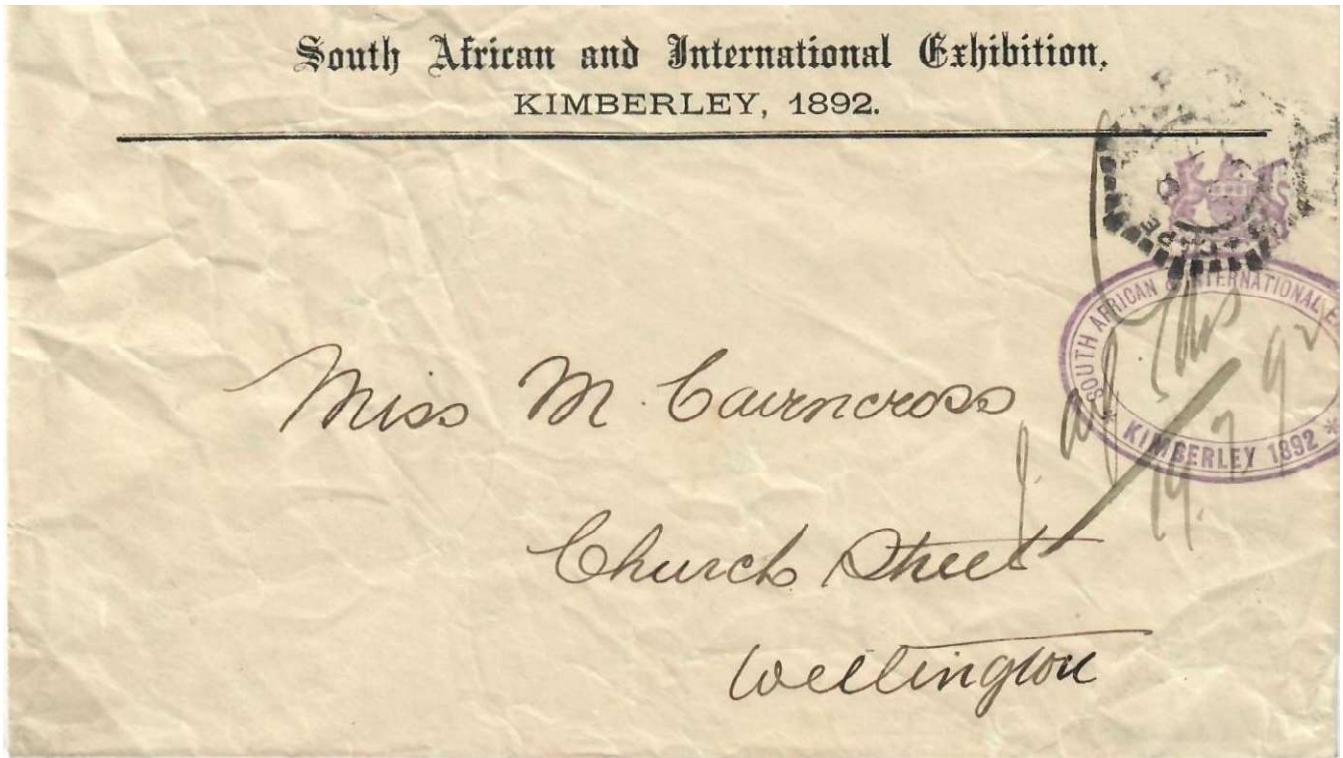 South African and International Exhibition,
KIMBERLEY, 1892.
CAPE
SOUTH AFRICAN & INTERNATIONAL E
* KIMBERLEY 1892 *
19.7.92
Miss M Cairncross
Church Street
Wellington